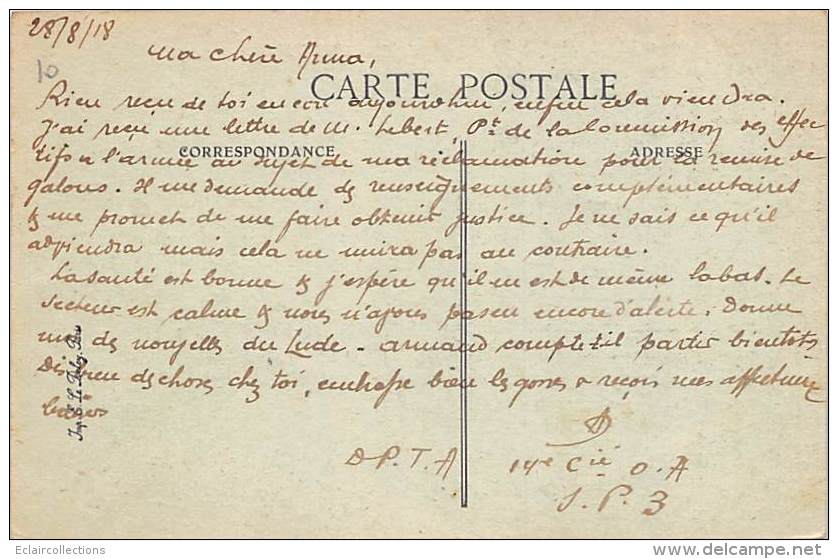 28/8/18
10
Ma chère Anna,
CARTE POSTALE
Rien reçu de toi encore aujourdhui, enfin cela viendra.
J'ai reçu une lettre de M. Lebert, Pt. de la Commission des effec
tifs a l'armée au sujet de ma réclamation pour la remise de
CORRESPONDANCE
ADRESSE
galons. Il me demande ds renseignements complémentaires
& me promet de me faire obtenir justice. Je ne sais ce qu'il
adviendra mais cela ne nuira pas au contraire.
La santé est bonne & j'espère qu'il en est de même labas. Le
secteur est calme & nous n'avons pas eu encore d'alerte. Donne
moi ds nouvelles du Lude. Armand compte til partir bientôt
Dis bien ds choses chez toi, embrasse bien ls gosses & reçois mes affectueux
baisers
D
D P. T. A
14e Cie O. A
S. P. 3
Eclaircollections
http://eclaircollections.delcampe.net